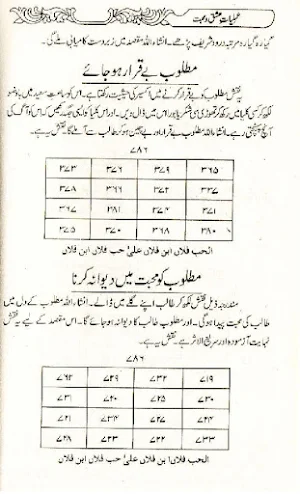 عملیات عشق و محبت
گیارہ گیارہ مرتبہ درود شریف پڑھے۔ انشاءاللہ مقصد میں زبردست کامیابی ملے گی۔
مطلوب بے قرار ہو جائے
یہ نقش مطلوب کو بے قرار کرنے میں اکسیر کی حیثیت رکھتا ہے۔ اس کو ساعت سعید میں باوضو
لکھ کر کسی کلہیا میں رکھ کر تھوڑی سی شکر یا اور اس میں ڈال دیں۔ اور اس کلہیا کو ایسی جگہ رکھیں کہ اس کو آگ کی
آنچ پہنچتی رہے۔ انشاءاللہ مطلوب بے قرار اور بے چین ہو کر طالب سے آ ملے گا۔ نقش یہ ہے۔
۷۸۶
۳۷۳ ۳۷۶ ۳۷۹ ۳۶۵
۳۷۸ ۳۶۶ ۳۷۲ ۳۷۷
۳۶۷ ۳۸۱ ۳۷۴ ۳۷۱
۳۷۵ ۳۷۰ ۳۶۸ ۳۸۰
الحب فلاں ابن فلاں علیٰ حب فلاں ابن فلاں
مطلوب کو محبت میں دیوانہ کرنا
مندرجہ ذیل نقش لکھ کر طالب اپنے گلے میں ڈالے۔ انشاءاللہ مطلوب کے دل میں
طالب کی محبت پیدا ہوگی۔ اور مطلوب طالب کا دیوانہ ہو جائے گا۔ اس مقصد کے لیے یہ نقش
نہایت آزمودہ اور سریع الاثر ہے۔ نقش یہ ہے۔
۷۸۶
۷۲۹ ۷۳۲ ۷۱۹
۷۳۱ ۷۲۰ ۷۲۵ ۷۳۰
۷۲۱ ۷۳۴ ۷۲۷ ۷۲۴
۷۲۸ ۷۲۳ ۷۲۲ ۷۳۳
الحب فلاں ابن فلاں علیٰ حب فلاں ابن فلاں